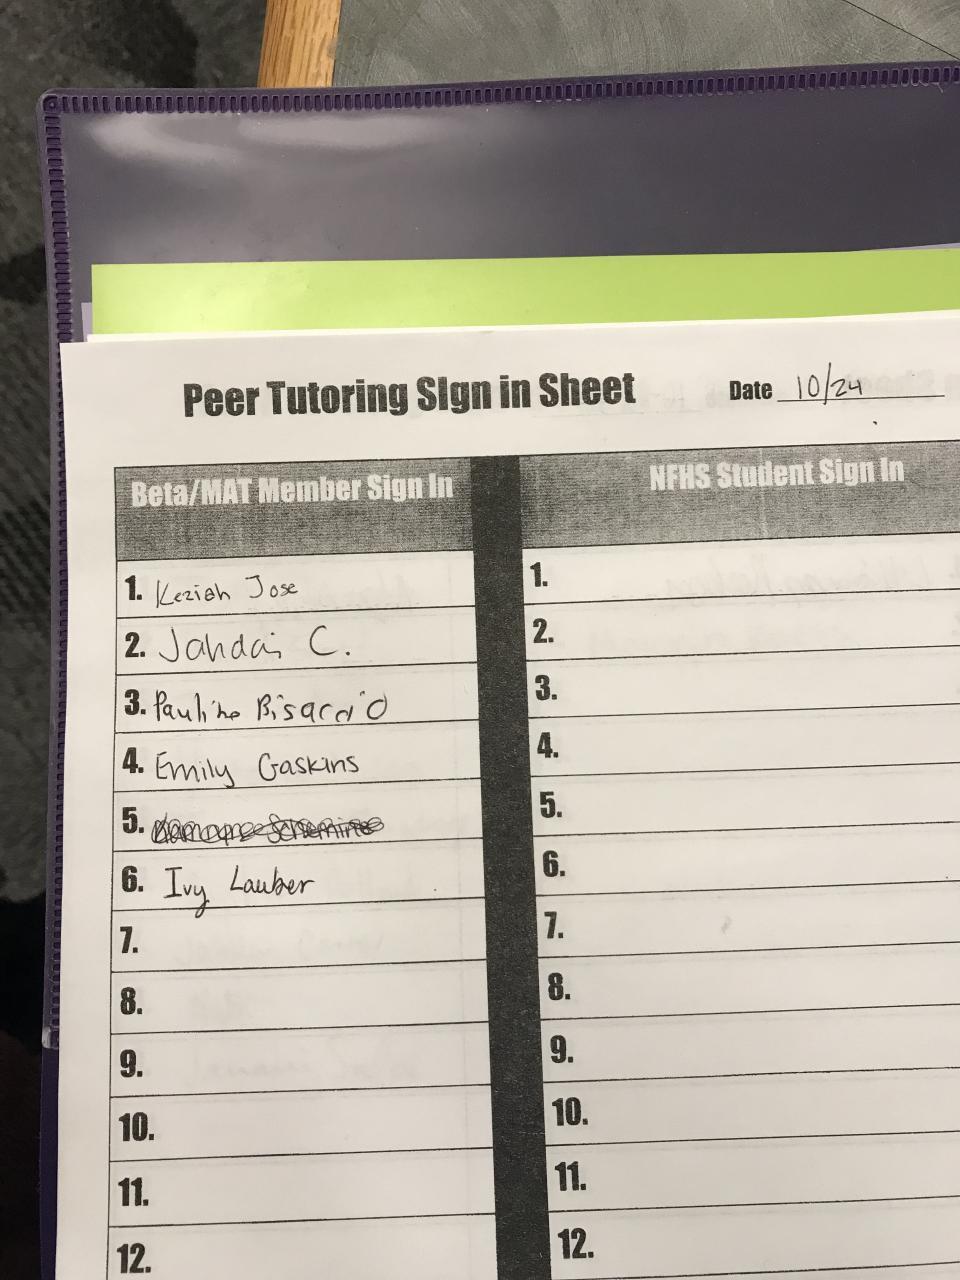 Peer Tutoring SIgn in Sheet Date 10/24
Beta/MAT Member Sign In
NFHS Student Sign In
1. Keziah Jose
2. Jahdai C.
3. Pauline
4. Emily Gaskins
5.
6. Ivy Lauber
7.
8.
9.
10.
11.
12.
1.
2.
3.
4.
5.
6.
7.
8.
9.
10.
11.
12.